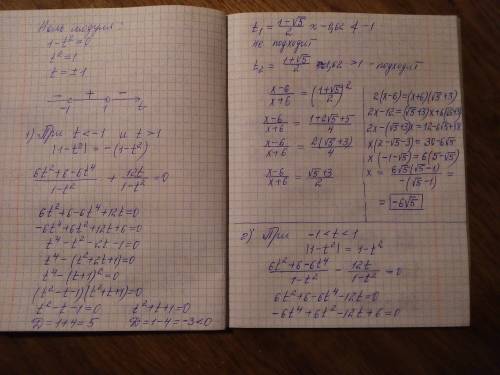 Ноль модуля:
1-t²=0
t²=1
t=±1
- + -
-1 1 t
1) При t<-1 и t>1
|1-t²| = -(1-t²)
(6t²+6-6t⁴)/(1-t²) + 12t/(1-t²) = 0
6t²+6-6t⁴+12t=0
-6t⁴+6t²+12t+6=0
t⁴-t²-2t-1=0
t⁴-(t²+2t+1)=0
t⁴-(t+1)²=0
(t²-t-1)(t²+t+1)=0
t²-t-1=0 t²+t+1=0
D=1+4=5 D=1-4=-3<0
t₁=(1-√5)/2 ≈ -0,62 < -1
не подходит
t₂=(1+√5)/2 ≈ 1,62 >1 - подходит
(x-6)/(x+6) = ((1+√5)/2)²
(x-6)/(x+6) = (1+2√5+5)/4
(x-6)/(x+6) = 2(√5+3)/4
(x-6)/(x+6) = (√5+3)/2
2(x-6)=(x+6)(√5+3)
2x-12=(√5+3)x+6(√5+3)
2x-(√5+3)x=12+6√5+18
x(2-√5-3)=30+6√5
x(-1-√5)=6(5+√5)
x = 6√5(√5+1)/-(√5+1) =
= -6√5
2) При -1<t<1
|1-t²| = 1-t²
(6t²+6-6t⁴)/(1-t²) - 12t/(1-t²) = 0
6t²+6-6t⁴-12t=0
-6t⁴+6t²-12t+6=0